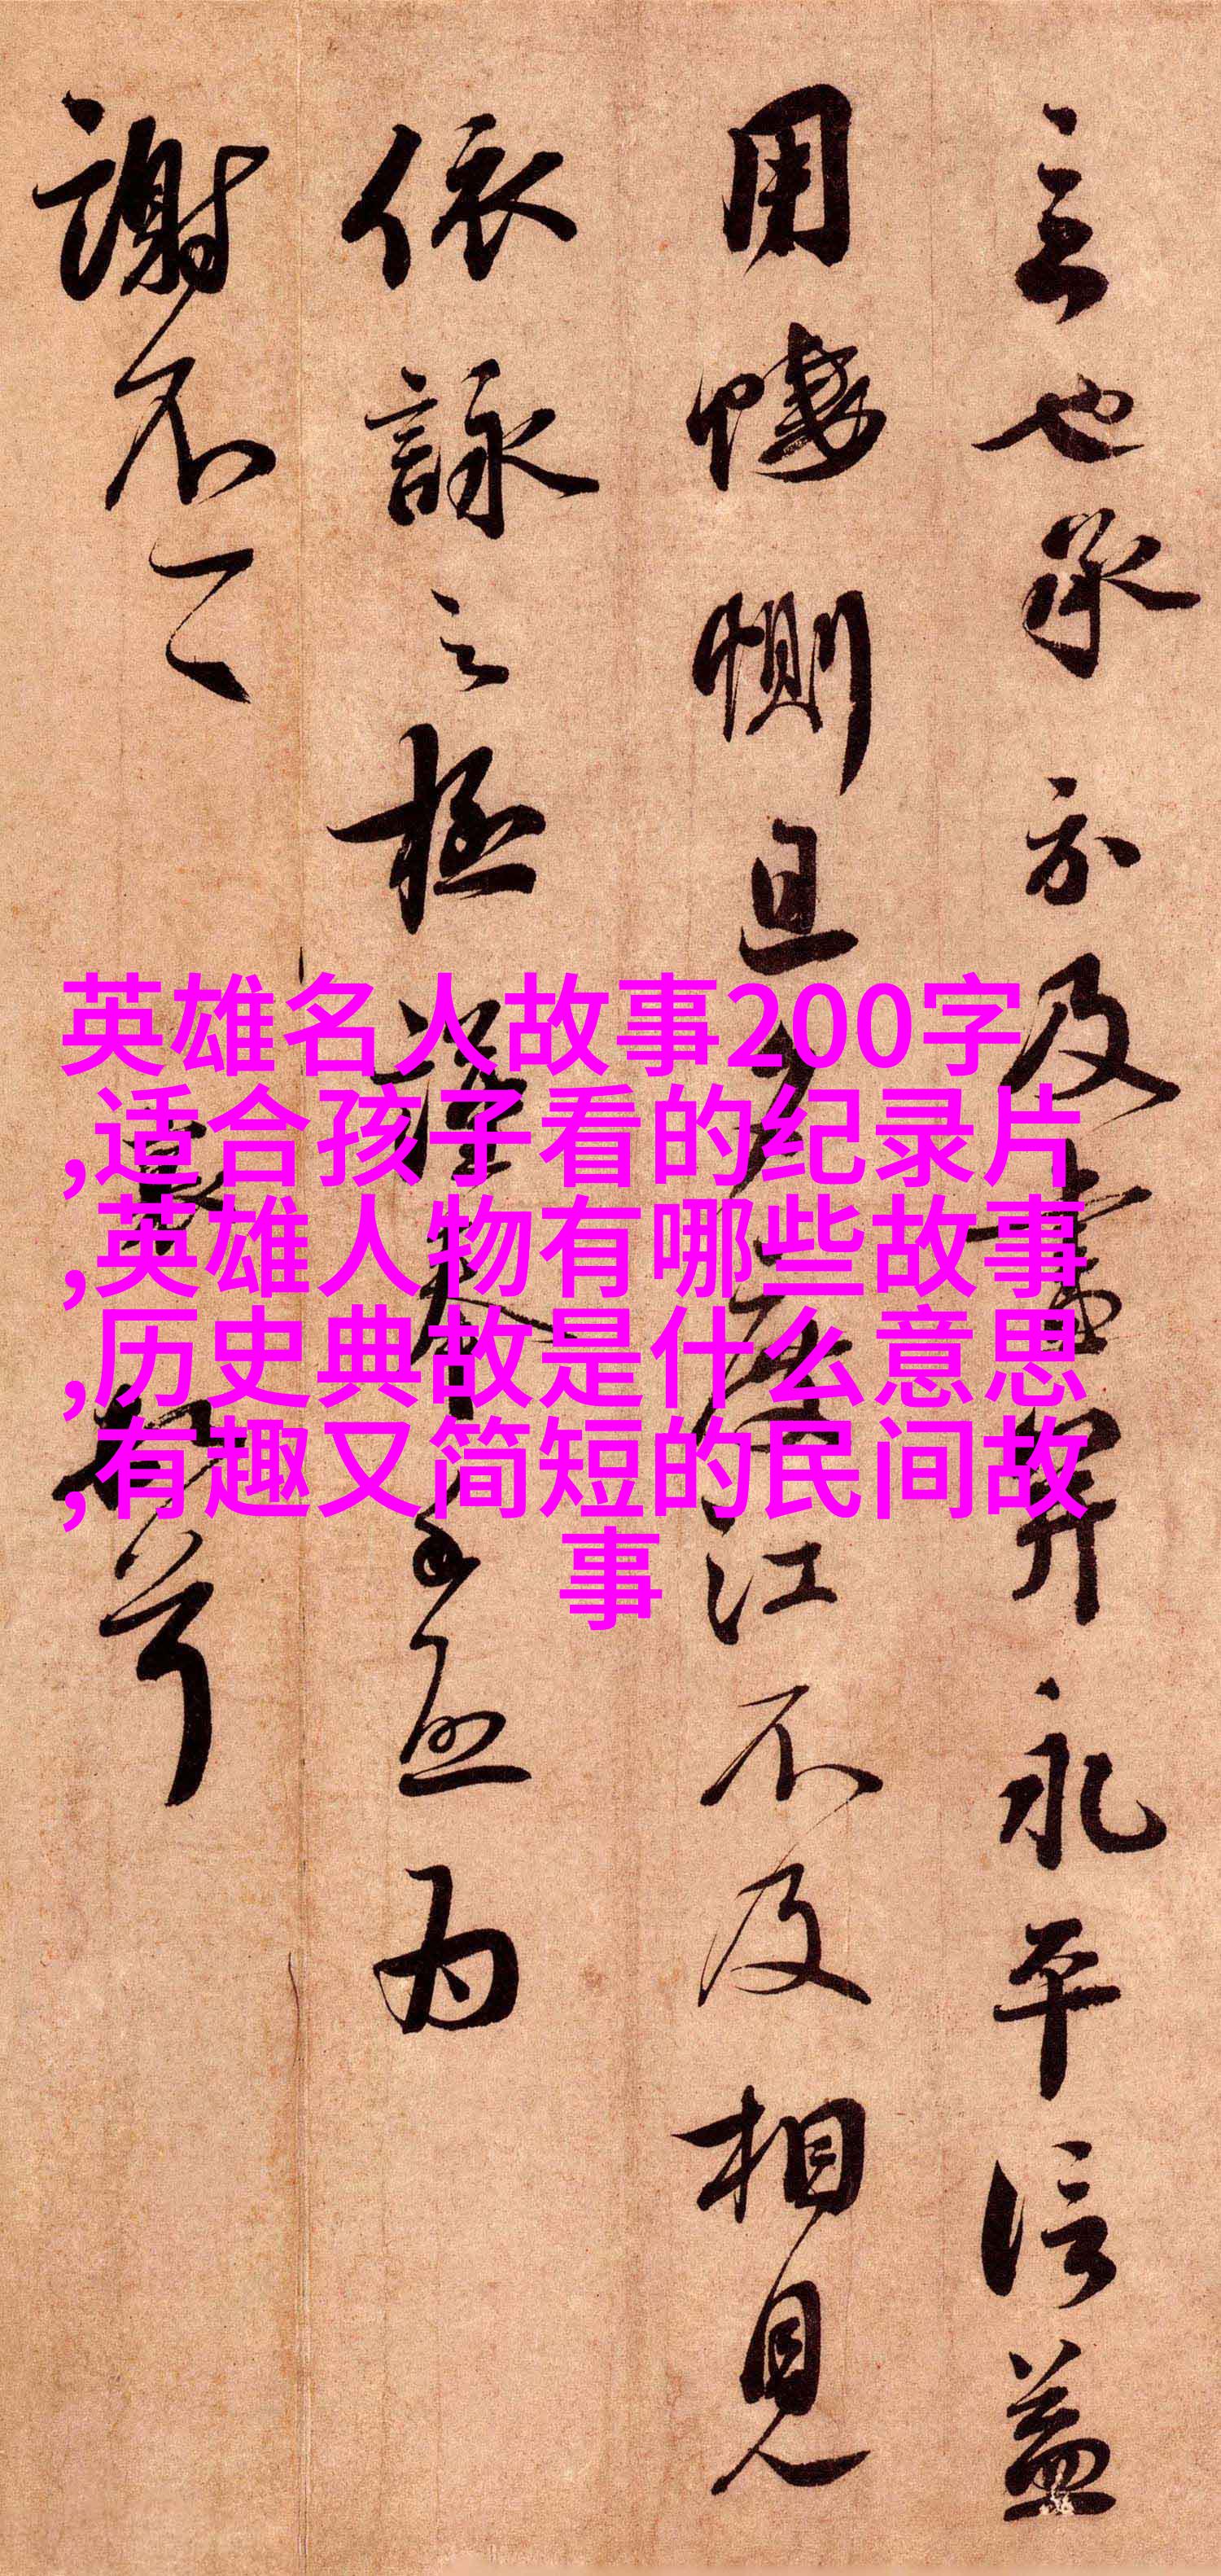 言也承示及書并永平信益
用悽惻且
江不及相見
依詠之極謹
為
謝不一
英雄名人故事200字
,适合孩子看的纪录片
,英雄人物有哪些故事
,历史典故是什么意思
,有趣又简短的民间故
事